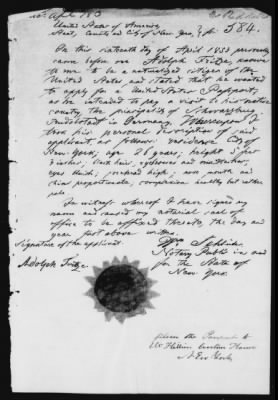 United States of America,
State, County and City of New York, } ss. 584.
On this sixteenth day of April 1853 personally
came before me Adolph Fritze, known
to me to be a naturalized citizen of the
United States and stated that he wanted
to apply for a United States Passport,
as he intended to pay a visit to his native
country, the principality of
in Germany. Whereupon I
took his personal description of said
applicant, as follows: residence City of
New York; age 26 years; height 5 feet
inches; dark hair, eyebrows and
eyes forehead high; nose, mouth and
chin proportionate, complexion healthy but rather
pale.
In witness whereof I have signed my
name and caused my notarial seal of
office to be affixed thereto, the day and
year first above written.
Signature of the applicant
Notary Public in and
Adolph Fritze
for the State of
New York.
please the Passport to
Custom House
New York